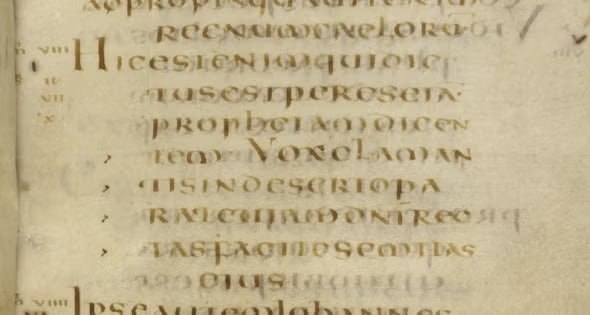 REGNUMCAELORU
VIII HICESTENIMQUIDIC
II TUSESTPERESEIA
VII PROPHETAMDICEN
X TEM VOXCLAMAN
TISINDESERTOPA
RATEUIAMDNIREC
TASFACITESEMITAS
EIUS
VIIII IPSEAUTEMIOHANNES